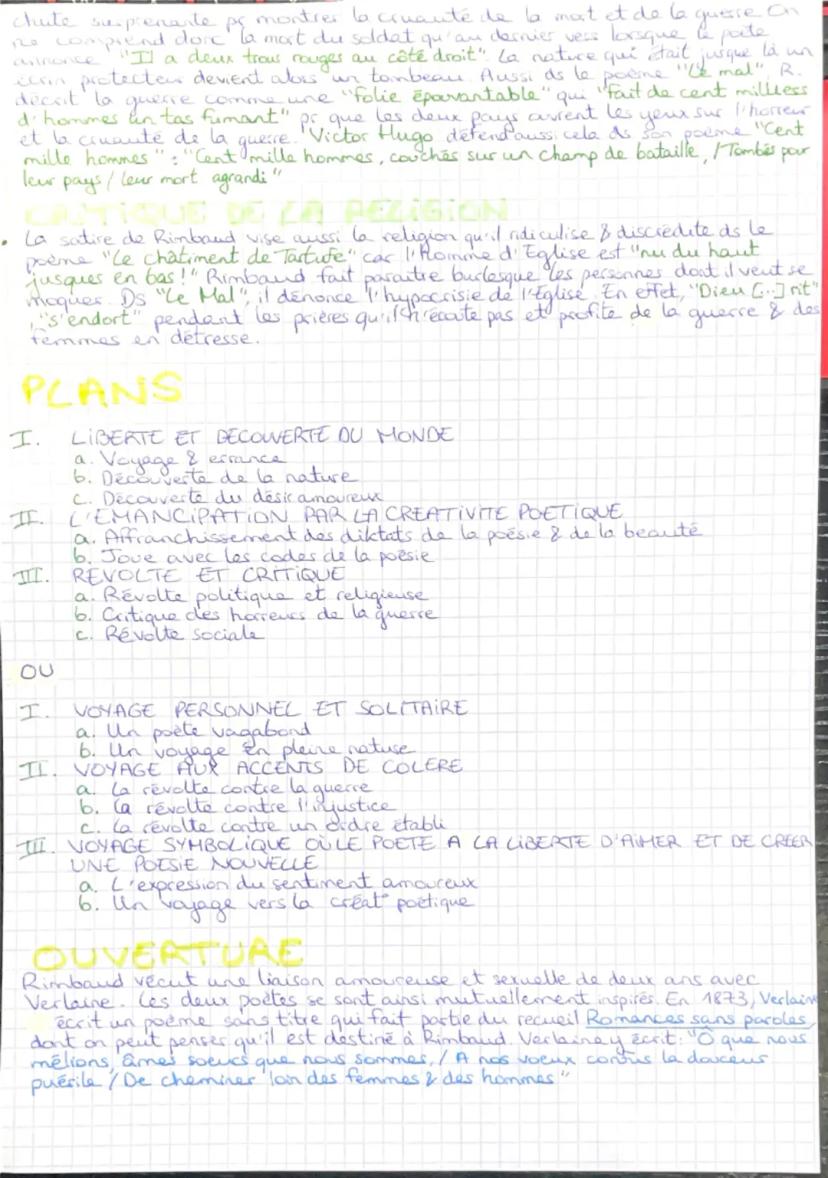 chute surprenante pr montrer la cruauté de la mort et de la guerre. On
ne comprend donc la mort du soldat qu'au dernier vers lorsque le poète
annonce "Il a deux trous rouges au côté droit". La nature qui était jusque là un
écrin protecteur devient alors un tombeau. Aussi ds le poème "Le mal", R.
décrit la guerre comme une "folie épouvantable" qui "fait de cent milliers
d'hommes un tas fumant" pr que les deux pays ouvrent les yeux sur l'horreur
et la cruauté de la guerre. Victor Hugo défend aussi cela ds son poème "Cent
mille hommes" : "Cent mille hommes, couchés sur un champ de bataille, / Tombés pour
leur pays / leur mort agrandi"
CRITIQUE DE LA RELIGION
• La satire de Rimbaud vise aussi la religion qu'il ridiculise & discrédite ds le
poème "Le châtiment de Tartufe" car l'Homme d'Eglise est "nu du haut
jusques en bas !" Rimbaud fait paraître burlesque les personnes dont il veut se
moquer. Ds "Le Mal", il dénonce l'hypocrisie de l'Eglise. En effet, "Dieu [...] rit"
, "s'endort" pendant les prières qu'il n'écoute pas et profite de la guerre & des
femmes en détresse.
PLANS
I. LIBERTE ET DECOUVERTE DU MONDE
a. Voyage & errance
b. Découverte de la nature
c. Découverte du désir amoureux
II. L'EMANCIPATION PAR LA CREATIVITE POETIQUE
a. Affranchissement des diktats de la poésie & de la beauté
b. Joue avec les codes de la poésie
III. REVOLTE ET CRITIQUE
a. Révolte politique et religieuse
b. Critique des horreurs de la guerre
c. Révolte sociale
OU
I. VOYAGE PERSONNEL ET SOLITAIRE
a. Un poète vagabond
b. Un voyage en pleine nature
II. VOYAGE AUX ACCENTS DE COLERE
a. La révolte contre la guerre
b. La révolte contre l'injustice
c. La révolte contre un ordre établi
III. VOYAGE SYMBOLIQUE OÙ LE POETE A LA LIBERTE D'AIMER ET DE CREER
UNE POESIE NOUVELLE
a. L'expression du sentiment amoureux
b. Un voyage vers la créat° poétique
OUVERTURE
Rimbaud vécut une liaison amoureuse et sexuelle de deux ans avec
Verlaine. Les deux poètes se sont ainsi mutuellement inspirés. En 1873, Verlaine
écrit un poème sans titre qui fait partie du recueil Romances sans paroles
dont on peut penser qu'il est destiné à Rimbaud. Verlaine y écrit : "Ô que nous
mêlions, âmes soeurs que nous sommes, / A nos voeux confus la douceur
puérile / De cheminer loin des femmes & des hommes"